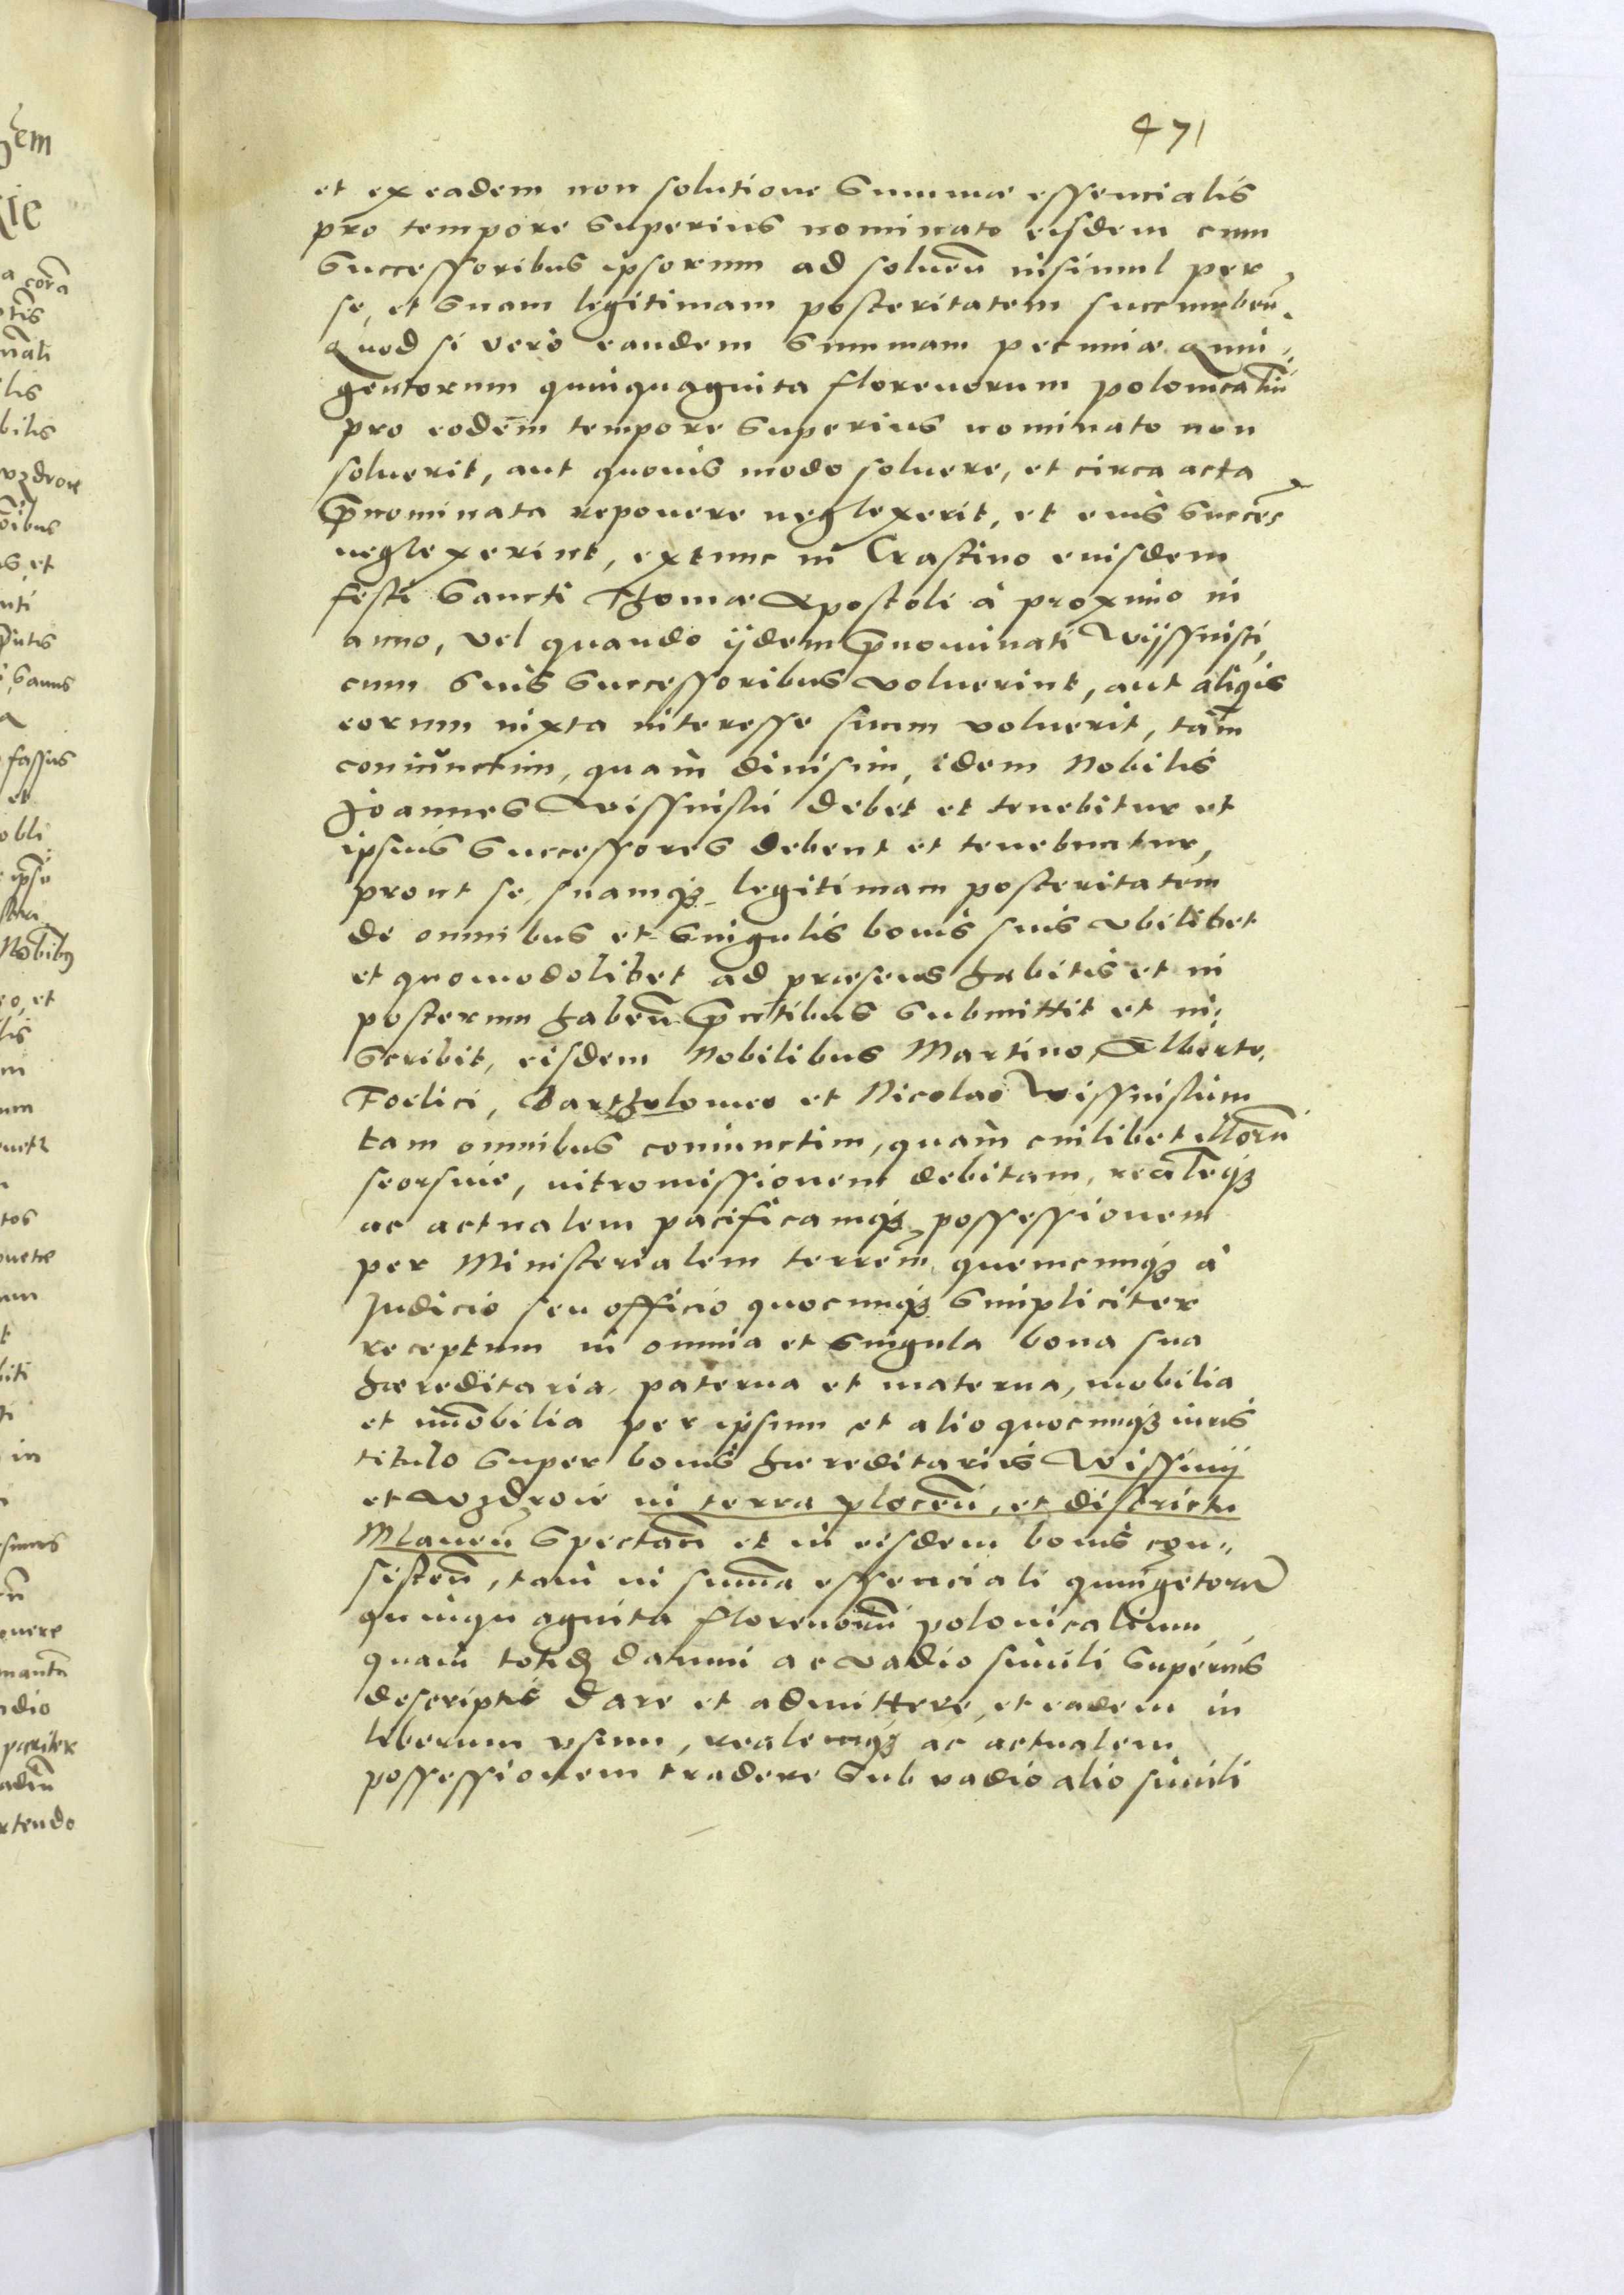 471
et ex eadem non solutione Summæ essencialis
pro tempore Superius nominato eisdem cum
Successoribus ipsorum ad soluen̄ insimul per
se, et Suam legitimam posteritatem succumben̄.
Quod si verò eandem Summam pecuniæ Quin„
gentorum quinquaginta florenorum polonicaliū
pro eodem tempore Superius nominato non
soluerit, aut quouis modo soluere, et circa acta
p̄nominata reponere neglexerit, et eius Succes̄
neglexerint, extunc in Crastino eiusdem
festi Sancti Thomæ Apostoli à proximo in
anno, vel quando ijdem p̄nominati Wijssnisci,
cum Suis Successoribus voluerint, aut aliquis
eorum iuxta interesse suum voluerit, tam̄
coniŭnctim, quàm diuisim, idem Nobilis
Joannes Wissniski debet et tenebitur et
ipsius Successores debent et tenebuntur,
prout se, suamq₃ legitimam posteritatem
de omnibus et Singulis bonis suis vbilibet
et quomodolibet ad præsens habitis et in
posterum haben̄ p̄ntibus Submittit et in„
Scribit, eisdem Nobilibus Martino, Alberto,
Foelici, Bartholomeo et Nicolao Wissniskim
tam omnibus coniunctim, quàm cuilibet illorū
seorsiue, intromissionem debitam, realeq₃
ac actualem pacificamq₃ possessionem
per Ministerialem terrēm, quemcunq₃ à
Judicio seu officio quocunq₃ Simpliciter
receptum in omnia et Singula bona sua
hæreditaria, paterna et materna, mobilia
et im̄obilia per ipsum et alio quocunq₃ iuris
titulo Super bonis hæreditariis Wissinij
et Wzdroie in terra plocen̄, et districtu
Mlauen̄ Spectan̄ et in eisdem bonis con„
sisten̄, tam in sum̄a essenciali quingētorū
quinquaginta florenorū polonicalium
quàm totid₃ damni ac vadio simili Superius
descriptis dare et admittere, et eadem in
liberum vsum, realemq₃ ac actualem
possessionem tradere Sub vadio alio simili